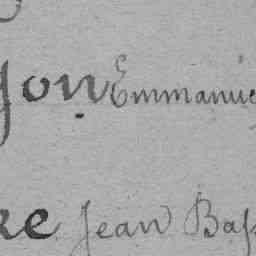 yon Emmanue
re Jean Bap